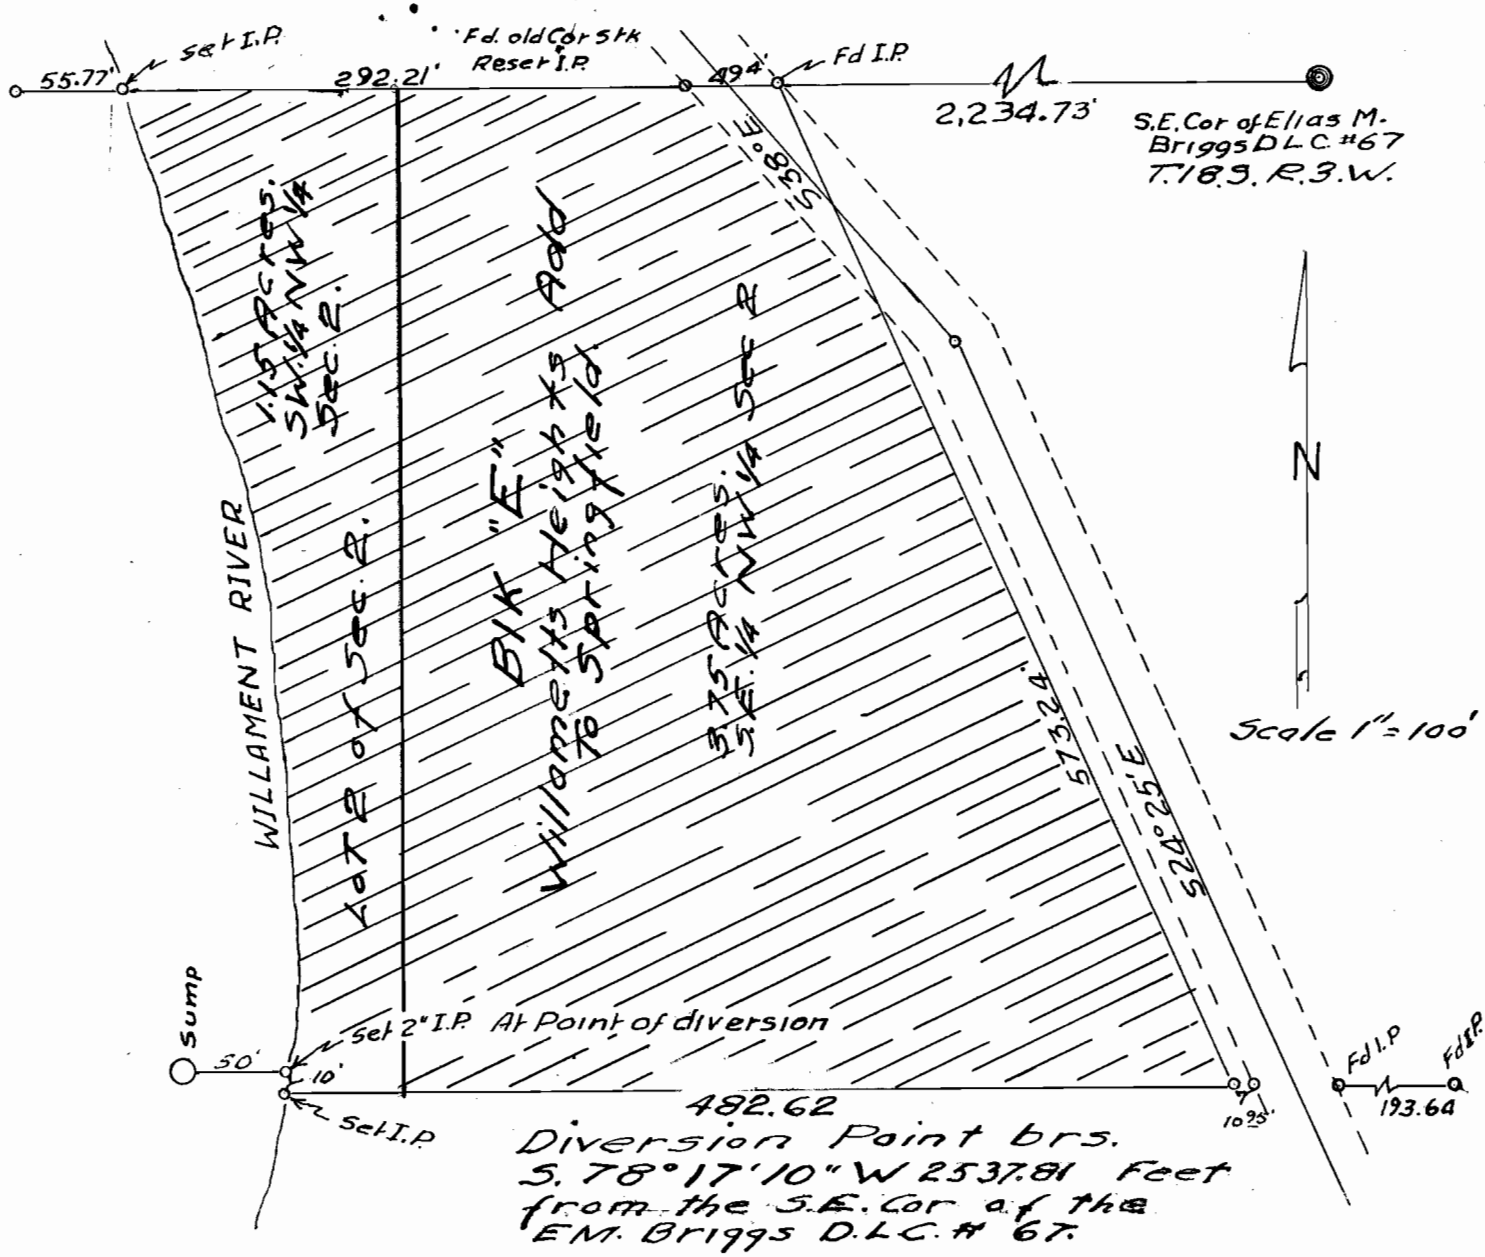 set I.P.
Fd. old Cor stk
Reset I.P.
Fd I.P.
55.77'
292.21'
49.4'
2,234.73'
S.E. Cor of Elias M.
Briggs D L C #67
T.18.S. R.3.W.
S38°E
1.15 Acres.
SW.1/4 NW 1/4
Sec. 2.
Lot 2 of Sec. 2.
Blk "E"
Willametts Heights Add
To Springfield.
3.75 Acres.
S.E. 1/4 NW 1/4 Sec 2
WILLAMENT RIVER
573.24
S24°25'E
N
Scale 1"=100'
Sump
50'
set 2" I.P. At Point of diversion
10'
Set I.P.
482.62
10.95'
Fd I.P
Fd I.P.
193.64
Diversion Point brs.
S. 78°17'10" W 2537.81 Feet
from the S.E. Cor of the
E.M. Briggs D.L.C. # 67.